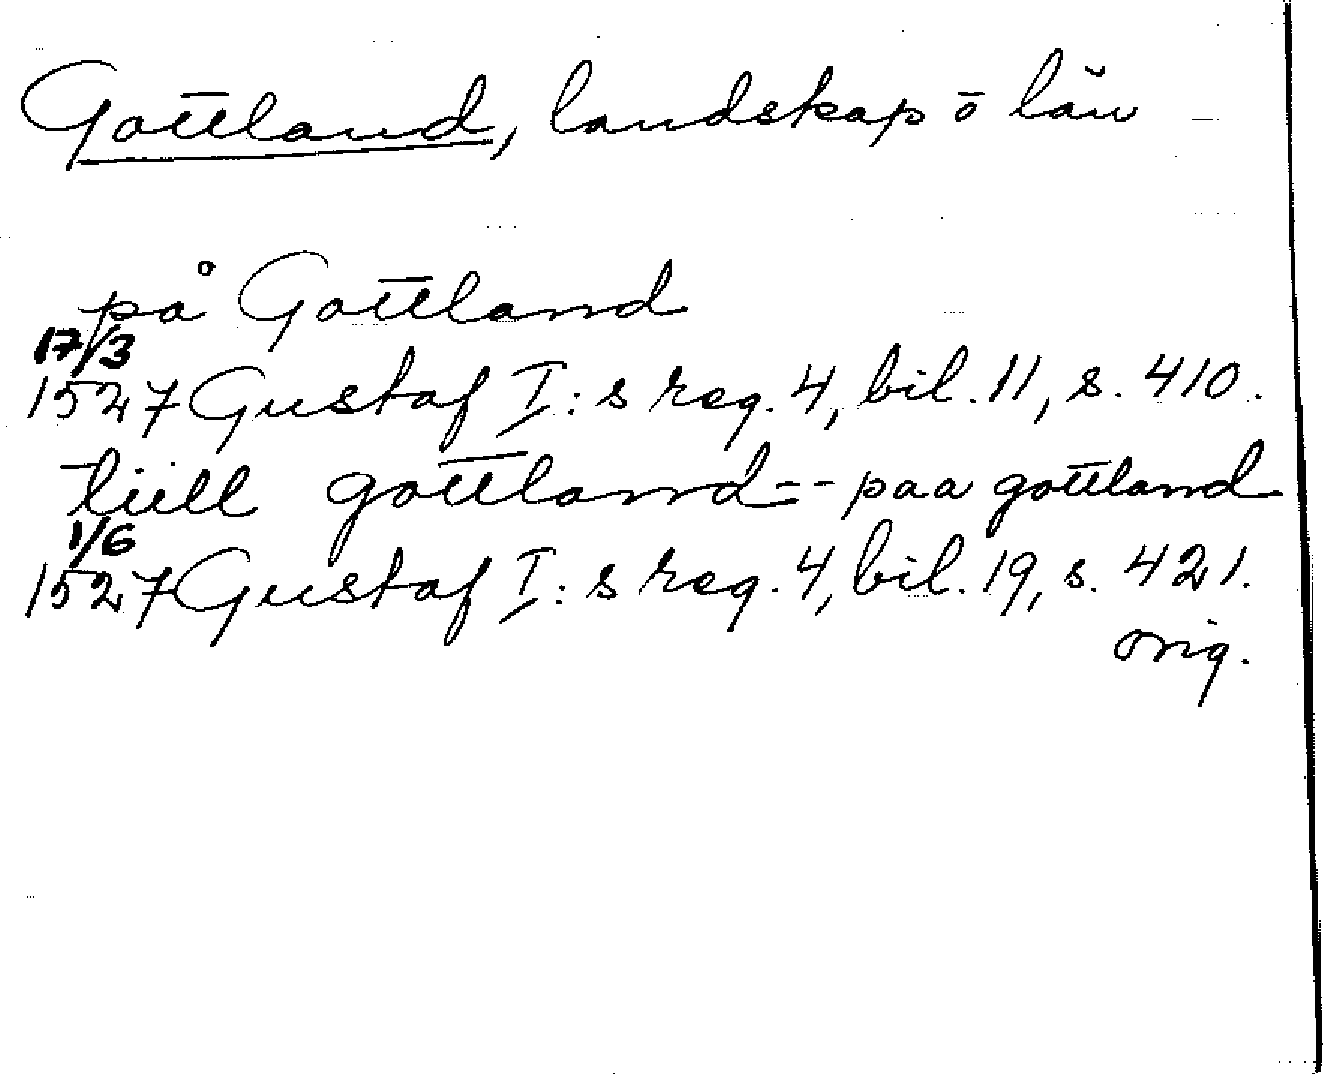 Gottland, landskap o län
på Gottland
17/3
1527 Gustaf I:s reg. 4, bil. 11, s. 410.
tiill gottland -- paa gottland
1/6
1527 Gustaf I:s reg. 4, bil. 19, s. 421.
orig.